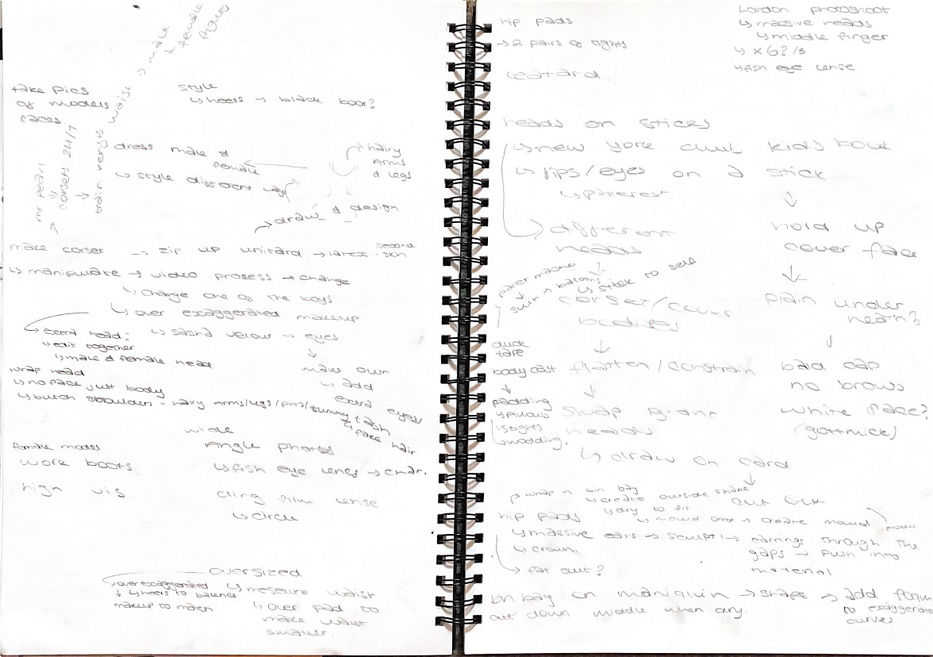 male & female
take pics
of models
faces.
style
↳ heels → black boot?
mr pearl
corset 24/7
train waist
dress male &
female
↳ style different way
hairy
arms
& legs
↳ draw & design
make corset → zip up unitard → latex - second skin
↳ manipulate → video prosess → change
↳ change one of the boys
↳ over exaggerated makeup
extra head:
↳ edit together
↳ male & female head
→ eyes
↓
make own
→ add
extra eyes
wrap head
↳ no face just body
↳ butch shoulders - hairy arms/legs/pits/tummy
↳ tash
↳ face hair
female model
work boots.
high vis.
wide
Angle photos
↳ fish eye lence → char.
cling film lense
↳ circle
oversized
↳ over exaggerated
↳ heels to balance
makeup to match
↳ measure waist
↳ over pad to
make waist
smaller.
hip pads
→ 2 pairs of tights
leotard.
London photoshoot
↳ massive heads
↳ middle finger
↳ fish eye lense
heads on sticks
↳ new york club kids
↳ lips/eyes on a stick
↳ pinterest
↳ different
heads
↓
hold up
cover face
↓
plain under
neath?
↓
bald cap
no brows
white face?
paper mache
suit → balloons
↳ stick to self
corset/
bodies
↓
flatten/constrain
↓
swap giant
heads
↳ draw on card
↓
cut out
duck
tape
body cast
↓
padding
↳ pillows
↳ tights
↳ wadding.
↳ wrap in bin bag
↳ create outside shape
↳ dry to fit
hip pads
↳ mould once → create mould
↳ massive ears → sculpt
↳ earrings through the
gaps → push into
material
↳ crown.
↳ fat suit?
bin bag on maniquin → shape → add foam
to exaggerate
curves
cut down middle when dry.